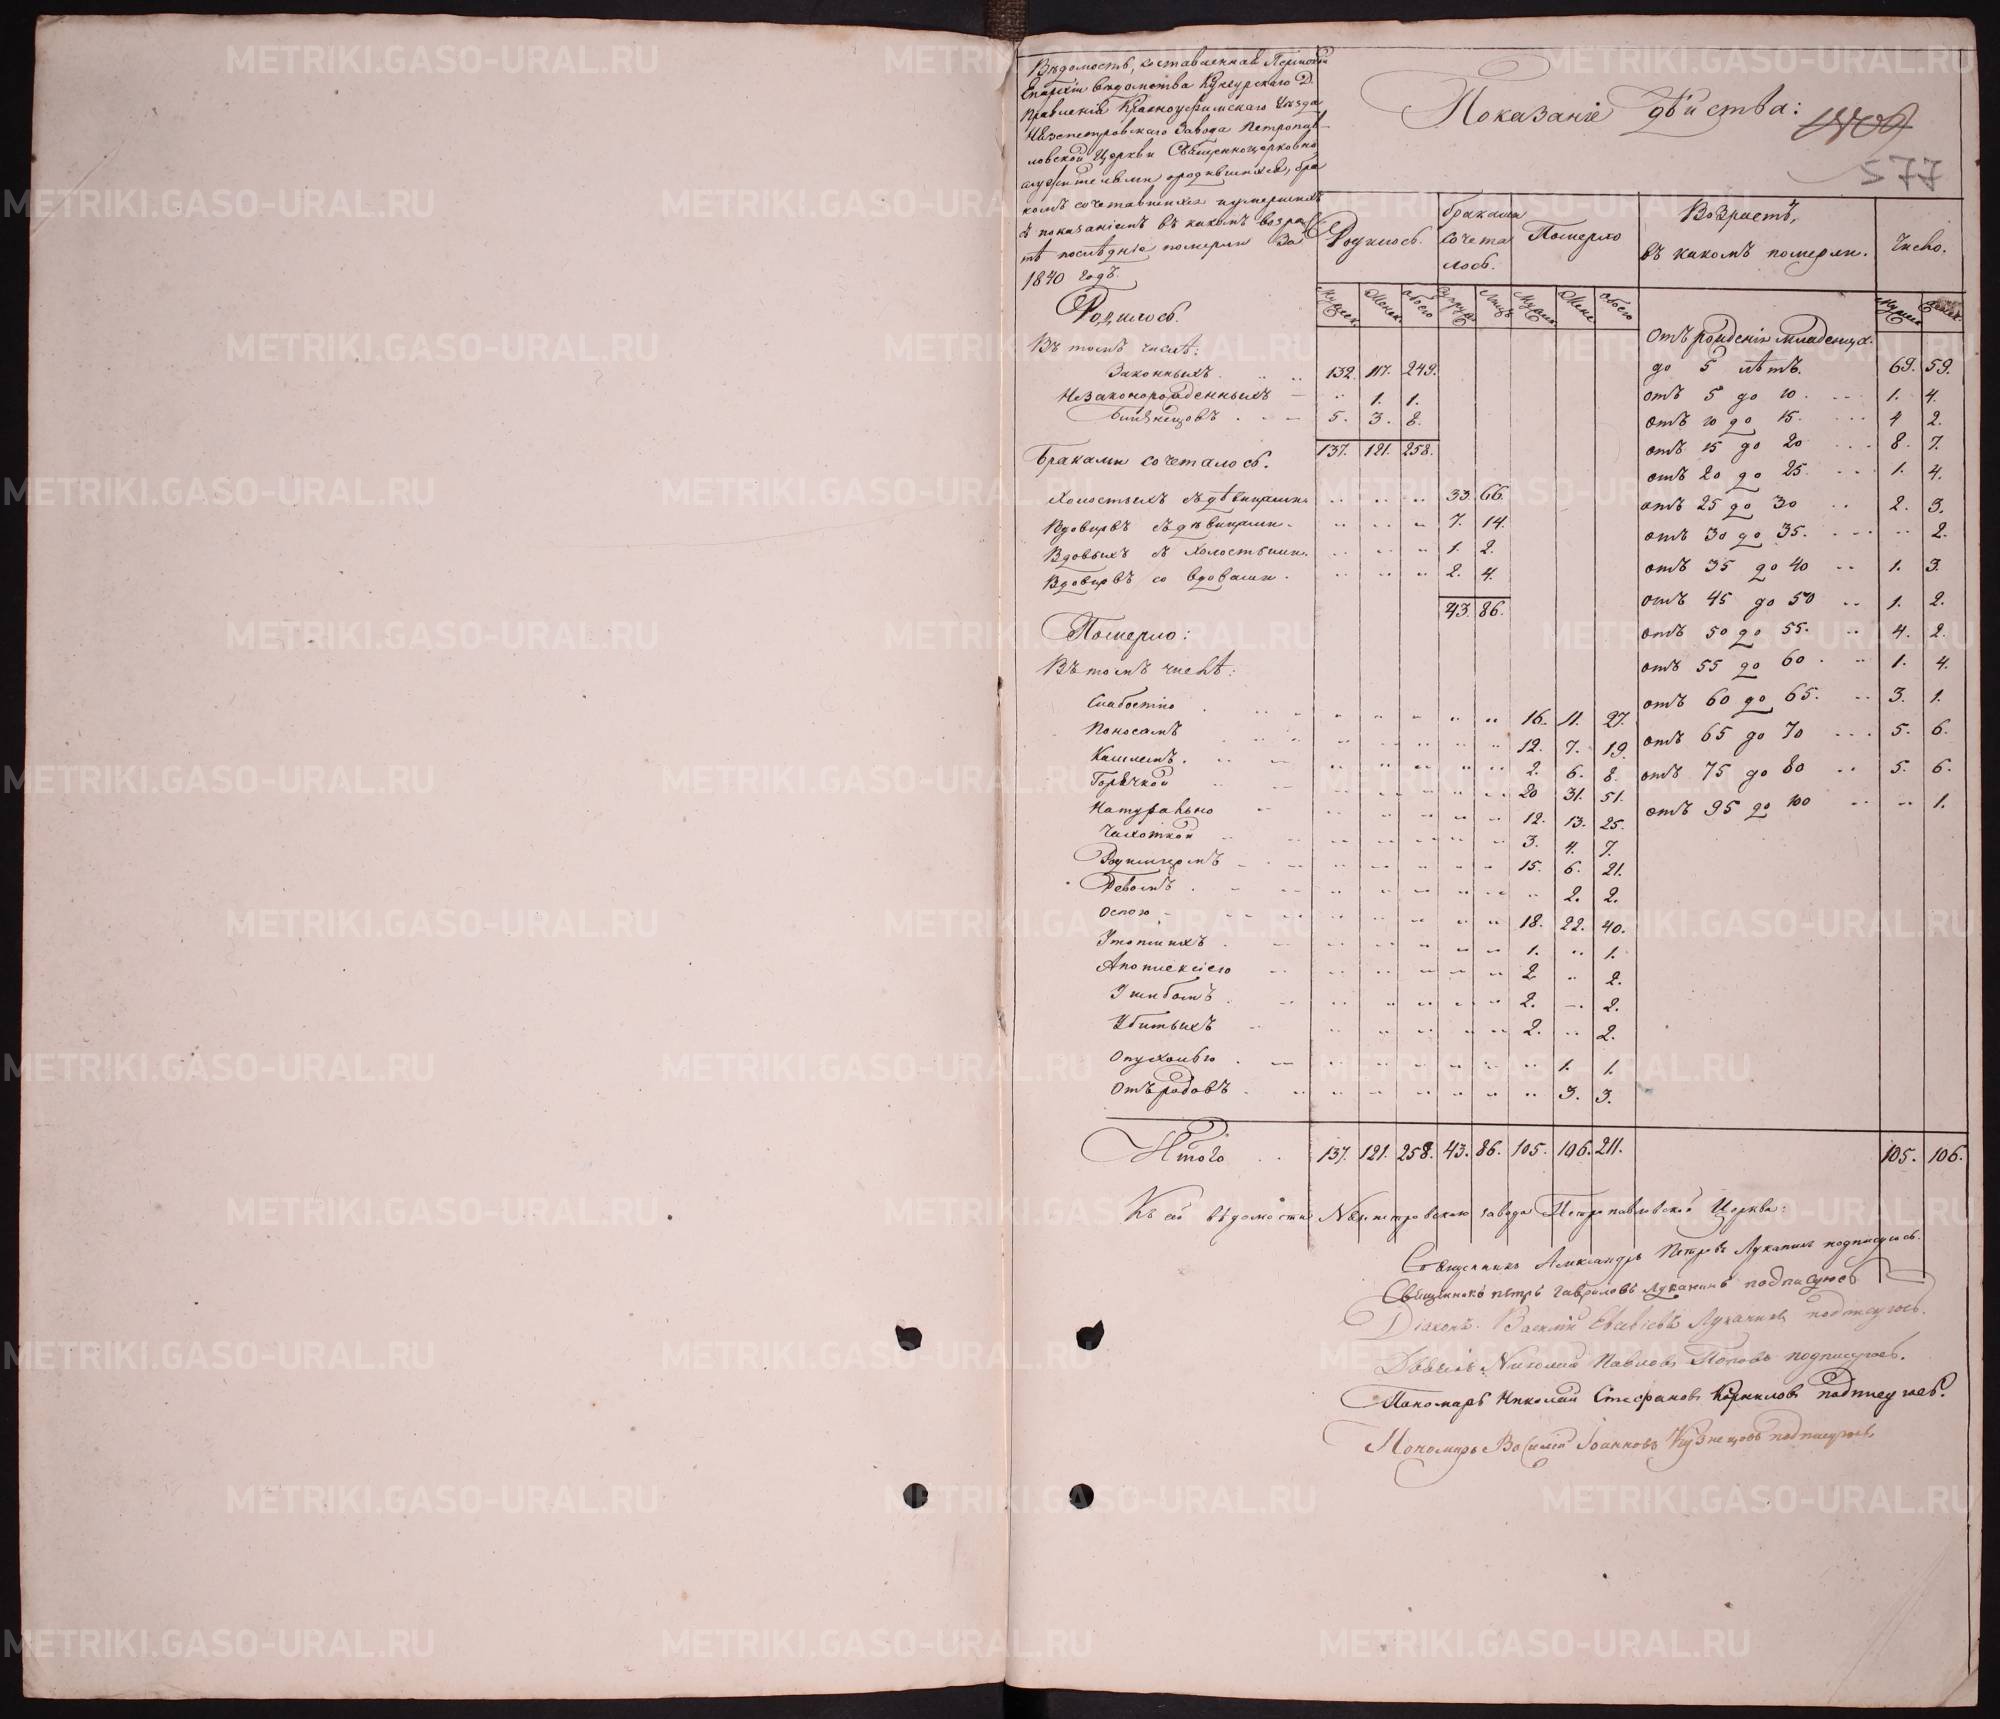 Вѣдомость, составленная Пермской
Епархіи вѣдомства Кунгурскаго Д.
Правленія Красноуфимскаго Уѣзда
Нязепетровскаго Завода Петропав-
ловской Церкви Священноцерковно
служителями о родившихся, бра
комъ сочетавшихся и умершихъ
съ показаніемъ въ какомъ возрас
тѣ послѣдніе померли За
1840 годъ.
Показаніе дѣйства:
1409
577
Родилось.
браками сочеталось.
Померло
Возрастъ, въ какомъ померли.
Число.
Мужеск. Женск. обоего Супруж. Лицъ Мужес. Женс. обоего
Мужеск. Женск.
Родилось.
Въ томъ числѣ:
Законныхъ 132. 117. 249.
Незаконорожденныхъ 1. 1.
Близнецовъ 5. 3. 8.
137. 121. 258.
Браками сочеталось.
Холостыхъ съ дѣвицами 33. 66.
Вдовцовъ съ дѣвицами 7. 14.
Вдовыхъ съ холостыми 1. 2.
Вдовцовъ со вдовами 2. 4.
43. 86.
Померло:
Въ томъ числѣ:
Слабостію 16. 11. 27.
Поносомъ 12. 7. 19.
Кашлемъ 2. 6. 8.
Горячкой 20 31. 51.
Натурально 12. 13. 25.
Чахоткой 3. 4. 7.
Родимцомъ 15. 6. 21.
Ревомъ 2. 2.
Оспою 18. 22. 40.
Утопшихъ 1. 1.
Апоплексіею 2 2.
Ушибомъ 2. 2.
Убитыхъ 2. 2.
Опухолью 1. 1.
Отъ родовъ 3. 3.
отъ рожденія младенца
до 5 лѣтъ. 69. 59.
отъ 5 до 10. 1. 4.
отъ 10 до 15. 4 2.
отъ 15 до 20 8. 7.
отъ 20 до 25. 1. 4.
отъ 25 до 30 2. 3.
отъ 30 до 35. 2.
отъ 35 до 40 1. 3.
отъ 45 до 50 1. 2.
отъ 50 до 55. 4. 2.
отъ 55 до 60. 1. 4.
отъ 60 до 65. 3. 1.
отъ 65 до 70 5. 6.
отъ 75 до 80 5. 6.
отъ 95 до 100 1.
Итого 137. 121. 258. 43. 86. 105. 106. 211. 105. 106.
Къ сей вѣдомости Нязепетровскаго завода Петропавловской Церкви:
Священникъ Александръ Петровъ Луканинъ подписуюсь.
Священникъ Петръ Гавриловъ Луканинъ подписуюсь
Діаконъ Василій Евсевіевъ Луканинъ подписуюсь.
Дьячекъ Николай Павловъ Поповъ подписуюсь.
Пономарь Николай Стефановъ Корниловъ подписуюсь.
Пономарь Василій Іоанновъ Кузнецовъ подписуюсь
METRIKI.GASO-URAL.RU